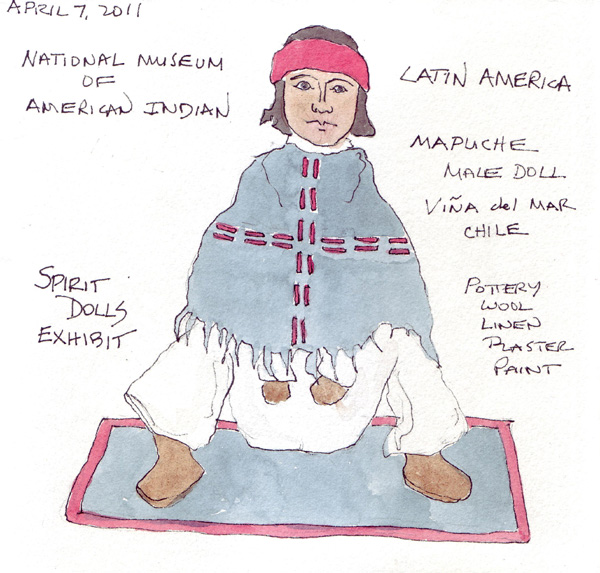 APRIL 7, 2011
NATIONAL MUSEUM
OF
AMERICAN INDIAN
LATIN AMERICA
MAPUCHE
MALE DOLL
VIÑA del MAR
CHILE
SPIRIT
DOLLS
EXHIBIT
POTTERY
WOOL
LINEN
PLASTER
PAINT